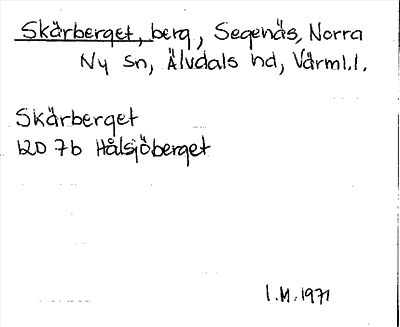 Skärberget, berg, Segenäs, Norra
Ny sn, Älvdals hd, Värml.l.
Skärberget
12D 7b Hålsjöberget
I.M. 1971